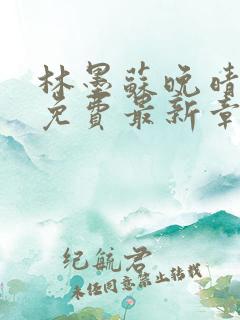 林墨蘇晚晴
免費最新章
纪航君
未经同意禁止转载